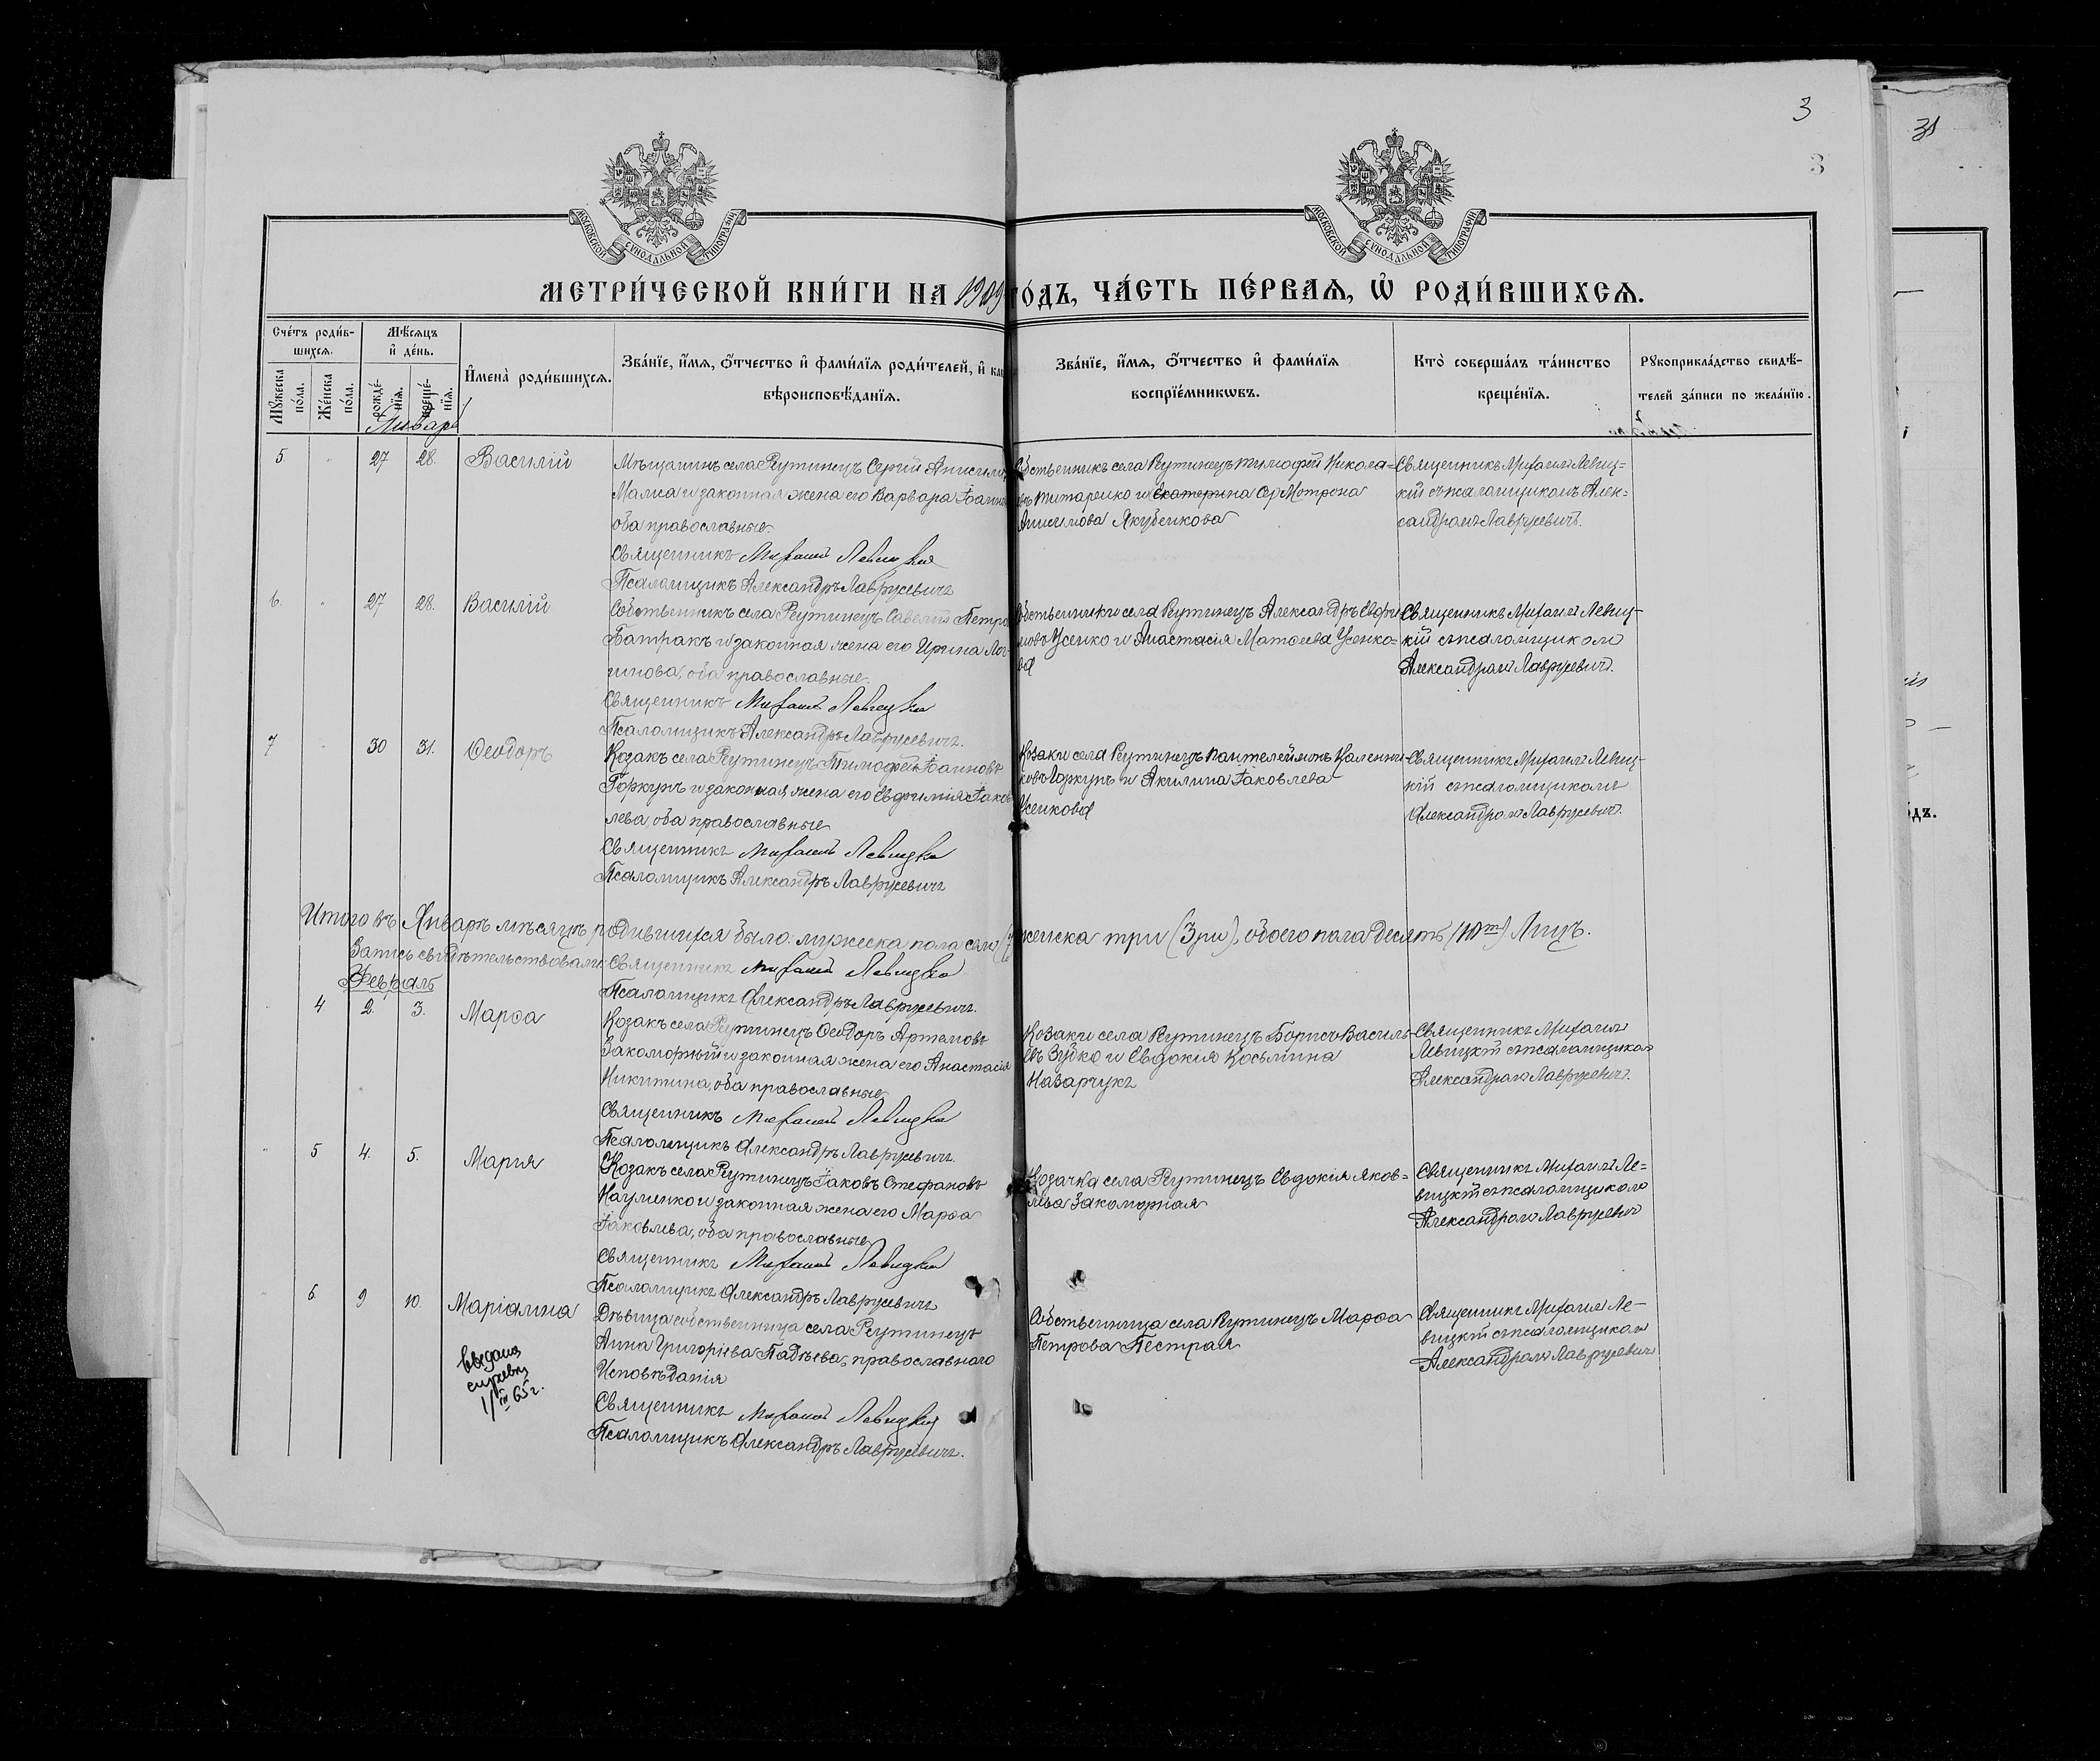 3
31
3
МОСКОВСКОЙ СѴНОДАЛЬНОЙ ТИПОГРАФІИ
МОСКОВСКОЙ СѴНОДАЛЬНОЙ ТИПОГРАФІИ
МЕТРИ́ЧЕСКОЙ КНИ́ГИ НА 1909 ГО́ДЪ, ЧА́СТЬ ПЕ́РВАѦ, Ѽ РОДИ́ВШИХСѦ.
Сче́тъ роди́в-
шихсѧ.
Мꙋ́жеска по́ла.
Же́нска по́ла.
Мѣ́сѧцъ
и҆ де́нь.
рожде́-нїѧ.
креще́-нїѧ.
И҆мена̀ роди́вшихсѧ.
Зва́нїе, и҆́мѧ, ѻ҆́тчество и҆ фами́лїѧ роди́телей, и҆ как
вѣроисповѣ́данїѧ.
Зва́нїе, и҆́мѧ, ѻ҆́тчество и҆ фами́лїѧ
воспрїе́мникѡвъ.
Кто̀ соверша́лъ та́инство
креще́нїѧ.
Рꙋкоприкла́дство свидѣ́-
телей за́писи по жела́нїю.
Январь
5 27 28. Василій
Мѣщанинъ села Реутинецъ Сергій Анисимо
Малиа и законная жена его Варвара Іоанно
оба православные.
Священникъ Михаилъ Левицкій
Псаломщикъ Александръ Лаврусевичъ
Собственникъ села Реутинецъ Тимофей Никола=
евъ Титаренко и Екатерина Сер Мотрона
Анисимова Якубенкова
Священникъ Михаилъ Левиц=
кій съ псаломщикомъ Алек=
сандромъ Лаврусевичъ.
6. 27 28. Василій
Собственникъ села Реутинецъ Савелій Петро
Батракъ и законная жена его Ирина Лог-
гинова, оба православные.
Священникъ Михаилъ Левицкій
Псаломщикъ Александръ Лаврусевичъ.
Собственники села Реутинецъ Александръ Евфи
мовъ Усенко и Анастасія Матѳеева Усенко=
ва
Священникъ Михаилъ Левиц-
кій съ псаломщикомъ
Александромъ Лаврусевичъ.
7 30 31. Ѳеодоръ
Козакъ села Реутинецъ Тимофей Іоанновъ
Горкунъ и законная жена его Евфимія Іаков
лева, оба православные
Священникъ Михаилъ Левицкій
Псаломщикъ Александръ Лаврусевичъ
Козаки села Реутинецъ Пантелеймонъ Каленни
ковъ Горкунъ и Акилина Іаковлева
Усенкова
Священникъ Михаилъ Левиц-
кій съ псаломщикомъ
Александромъ Лаврусевичъ.
Итого въ Январѣ мѣсяцѣ родившихся было: мужеска пола семь (7 женска три (3ри), обоего пола десять (10т) Лицъ.
Запись свидѣтельствовали: Священникъ Михаилъ Левицкій
Псаломщикъ Александръ Лаврусевичъ.
Февраль
4 2. 3. Марѳа
Козакъ села Реутинецъ Ѳеодоръ Артемовъ
Закоморный и законная жена его Анастасія
Никитина, оба православные
Священникъ Михаилъ Левицкій
Псаломщикъ Александръ Лаврусевичъ.
Козаки села Реутинецъ Борисъ Василь
евъ Зубко и Евдокія Косьмина
Назарчукъ
Священникъ Михаилъ
Левицкій съ псаломщикомъ
Александромъ Лаврусевичъ.
5 4. 5. Мария
Козакъ села Реутинецъ Іаковъ Стефановъ
Науменко и законная жена его Марѳа
Іаковлева, оба православные
Священникъ Михаилъ Левицкій
Псаломщикъ Александръ Лаврусевичъ
Козачка села Реутинецъ Евдокія Яков=
лева Закоморная
Священникъ Михаилъ Ле=
вицкій съ псаломщикомъ
Александромъ Лаврусевич
6. 9 10. Маріамна
Дѣвица собственница села Реутинецъ
Анна Григоріева Падѣева, православного
Исповѣданія
Священникъ Михаилъ Левицкій
Псаломщикъ Александръ Лаврусевичъ.
Собственница села Реутинецъ Марѳа
Петрова Пестрая
Священникъ Михаилъ Ле-
вицкій съ псаломщикомъ
Александромъ Лаврусевичъ
выдана
справка
1/III 65г.
дъ.